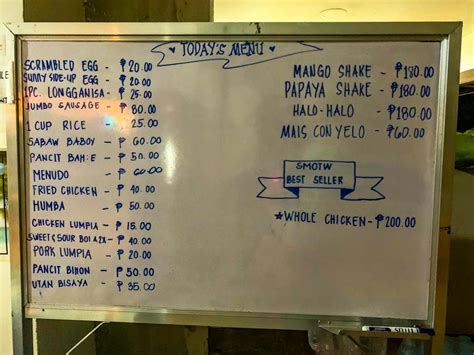 TODAY'S MENU
SCRAMBLED EGG - ₱20.00
SUNNY SIDE-UP EGG - ₱20.00
1PC. LONGGANISA - ₱25.00
JUMBO SAUSAGE - ₱80.00
1 CUP RICE - ₱25.00
SABAW BABOY - ₱60.00
PANCIT - ₱50.00
MENUDO - ₱60.00
FRIED CHICKEN - ₱40.00
HUMBA - ₱50.00
CHICKEN LUMPIA - ₱15.00
SWEET & SOUR - ₱40.00
PORK LUMPIA - ₱20.00
PANCIT BIHON - ₱50.00
UTAN BISAYA - ₱35.00
MANGO SHAKE - ₱180.00
PAPAYA SHAKE - ₱180.00
HALO-HALO - ₱180.00
MAIS CON YELO - ₱60.00
SMOTW
BEST SELLER
*WHOLE CHICKEN - ₱200.00